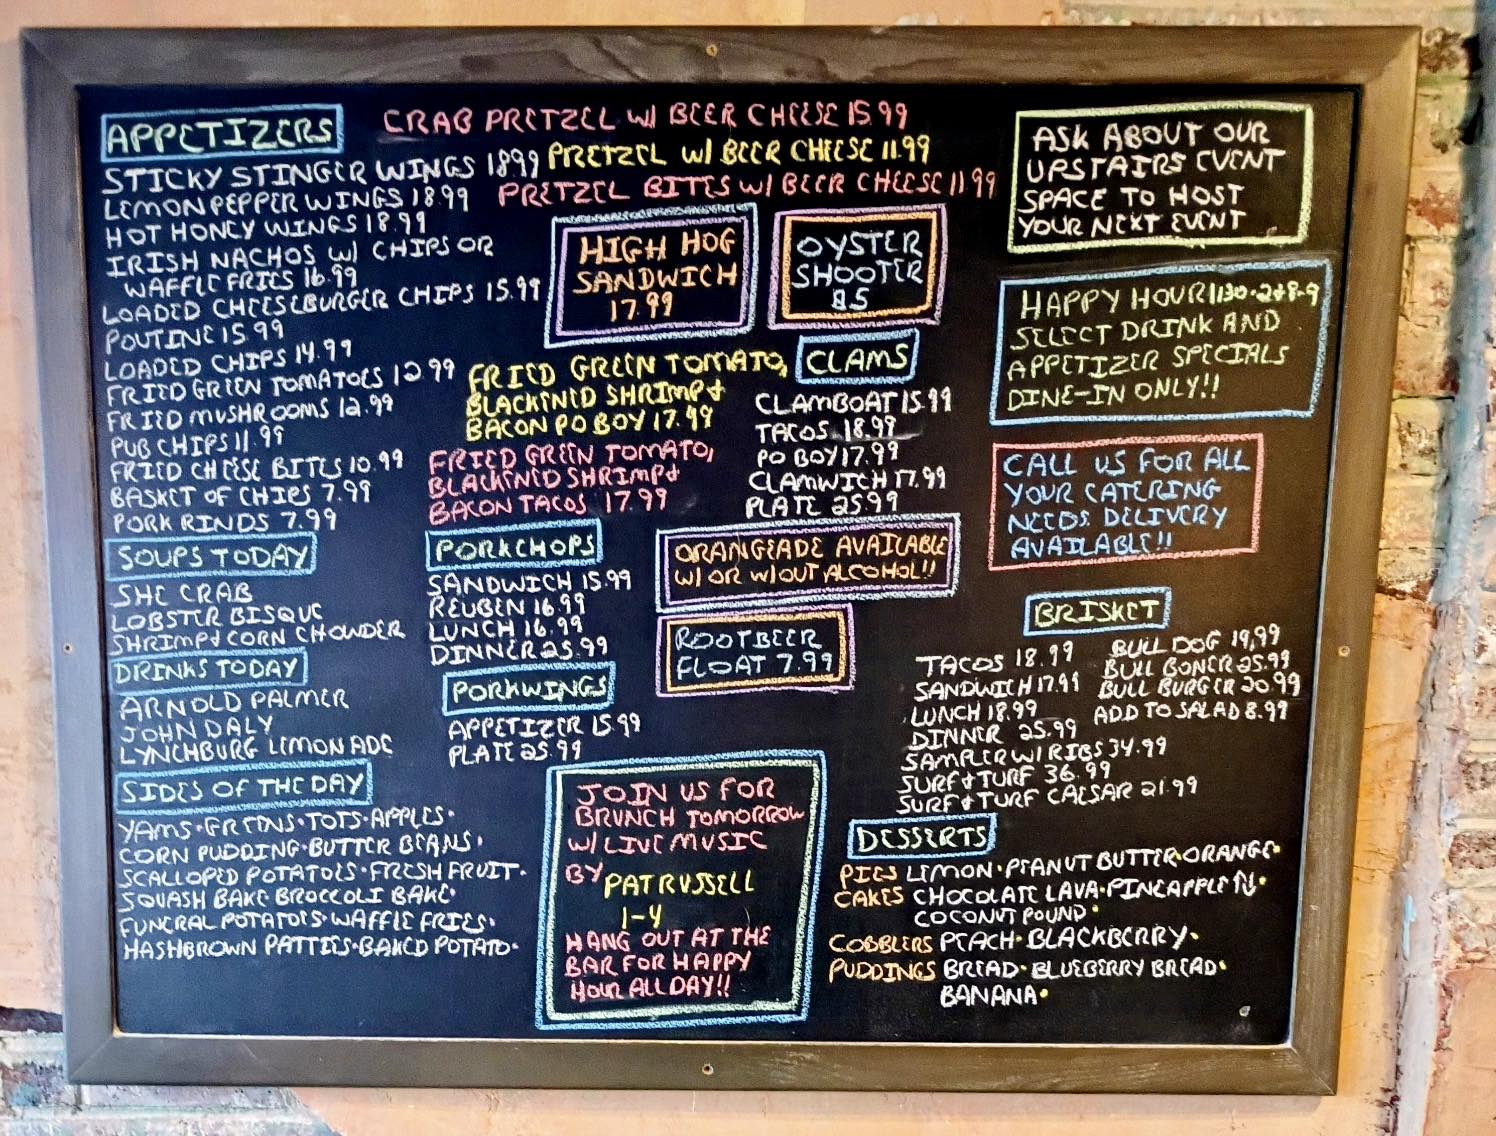 APPETIZERS
CRAB PRETZEL W/ BEER CHEESE 15.99
PRETZEL W/ BEER CHEESE 11.99
PRETZEL BITES W/ BEER CHEESE 11.99
STICKY STINGER WINGS 18.99
LEMON PEPPER WINGS 18.99
HOT HONEY WINGS 18.99
IRISH NACHOS W/ CHIPS OR
WAFFLE FRIES 16.99
LOADED CHEESEBURGER CHIPS 15.99
POUTINE 15.99
LOADED CHIPS 14.99
FRIED GREEN TOMATOES 12.99
FRIED MUSHROOMS 12.99
PUB CHIPS 11.99
FRIED CHEESE BITES 10.99
BASKET OF CHIPS 7.99
PORK RINDS 7.99
SOUPS TODAY
SHE CRAB
LOBSTER BISQUE
SHRIMP & CORN CHOWDER
DRINKS TODAY
ARNOLD PALMER
JOHN DALY
LYNCHBURG LEMONADE
SIDES OF THE DAY
YAMS • GREENS • TOTS • APPLES •
CORN PUDDING • BUTTER BEANS •
SCALLOPED POTATOES • FRESH FRUIT •
SQUASH BAKE BROCCOLI BAKE •
FUNERAL POTATOES • WAFFLE FRIES •
HASHBROWN PATTIES • BAKED POTATO •
HIGH HOG
SANDWICH
17.99
OYSTER
SHOOTER
$5
FRIED GREEN TOMATO,
BLACKENED SHRIMP &
BACON PO BOY 17.99
FRIED GREEN TOMATO,
BLACKENED SHRIMP &
BACON TACOS 17.99
CLAMS
CLAMBOAT 15.99
TACOS 18.99
PO BOY 17.99
CLAMWICH 17.99
PLATE 25.99
PORKCHOPS
SANDWICH 15.99
REUBEN 16.99
LUNCH 16.99
DINNER 25.99
PORKWINGS
APPETIZER 15.99
PLATE 25.99
ORANGEADE AVAILABLE
W/ OR W/OUT ALCOHOL!!
ROOTBEER
FLOAT 7.99
JOIN US FOR
BRUNCH TOMORROW
W/ LIVE MUSIC
BY PAT RUSSELL
1-4
HANG OUT AT THE
BAR FOR HAPPY
HOUR ALL DAY!!
ASK ABOUT OUR
UPSTAIRS EVENT
SPACE TO HOST
YOUR NEXT EVENT
HAPPY HOUR 1130-2 & 8-9
SELECT DRINK AND
APPETIZER SPECIALS
DINE-IN ONLY!!
CALL US FOR ALL
YOUR CATERING
NEEDS. DELIVERY
AVAILABLE!!
BRISKET
TACOS 18.99
SANDWICH 17.99
LUNCH 18.99
DINNER 25.99
SAMPLER W/ RIBS 34.99
SURF & TURF 36.99
SURF & TURF CAESAR 21.99
BULL DOG 19.99
BULL BONER 25.99
BULL BURGER 20.99
ADD TO SALAD 8.99
DESSERTS
PIES LEMON • PEANUT BUTTER • ORANGE •
CAKES CHOCOLATE LAVA • PINEAPPLE ↑↓ •
COCONUT POUND •
COBBLERS PEACH • BLACKBERRY •
PUDDINGS BREAD • BLUEBERRY BREAD •
BANANA •